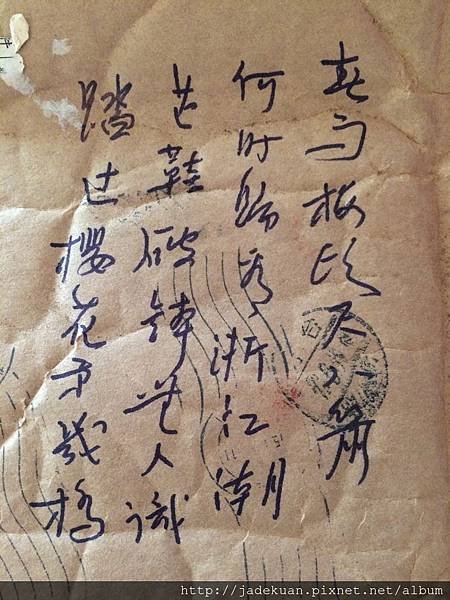 春雨楼头尺八箫
何时歸看浙江潮
芒鞋破鉢无人識
踏过櫻花第幾橋
http://jadekuan.pixnet.net/album